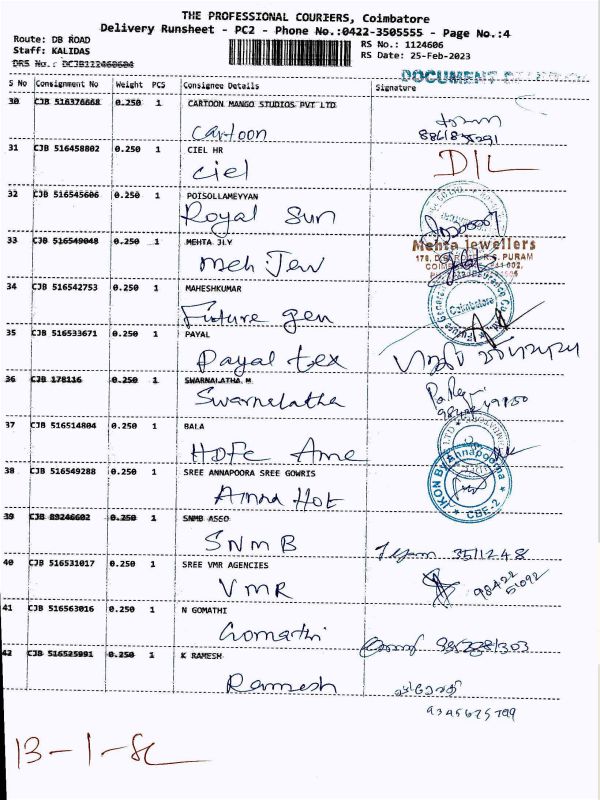 THE PROFESSIONAL COURIERS, Coimbatore
Delivery Runsheet - PC2 - Phone No.:0422-3505555 - Page No.:4
Route: DB ROAD
RS No.: 1124606
Staff: KALIDAS
RS Date: 25-Feb-2023
DRS No.: DCJB112460604
S No Consignment No Weight PCS Consignee Details Signature
30 CJB 516376668 0.250 1 CARTOON MANGO STUDIOS PVT LTD
Cartoon
31 CJB 516458802 0.250 1 CIEL HR
Ciel D/L
32 CJB 516545606 0.250 1 POISOLLAMEYYAN
Royal Sun
33 CJB 516549048 0.250 1 MEHTA JLY
Meh Jew
Mehta Jewellers
R.S. PURAM
34 CJB 516542753 0.250 1 MAHESHKUMAR
Future gen
Coimbatore
35 CJB 516533671 0.250 1 PAYAL
Payal tex
36 CJB 178116 0.250 1 SWARNALATHA M
Swarnalatha
37 CJB 516514804 0.250 1 BALA
HDFC Ame
38 CJB 516549288 0.250 1 SREE ANNAPOORA SREE GOWRIS
Anna Hot
IKON By Annapoorna
CBE-2
39 CJB 89246602 0.250 1 SNMB ASSO
SNMB
40 CJB 516531017 0.250 1 SREE VMR AGENCIES
VMR
98422
51692
41 CJB 516563016 0.250 1 N GOMATHI
Gomathi
42 CJB 516525091 0.250 1 K RAMESH
Ramesh
13-1-